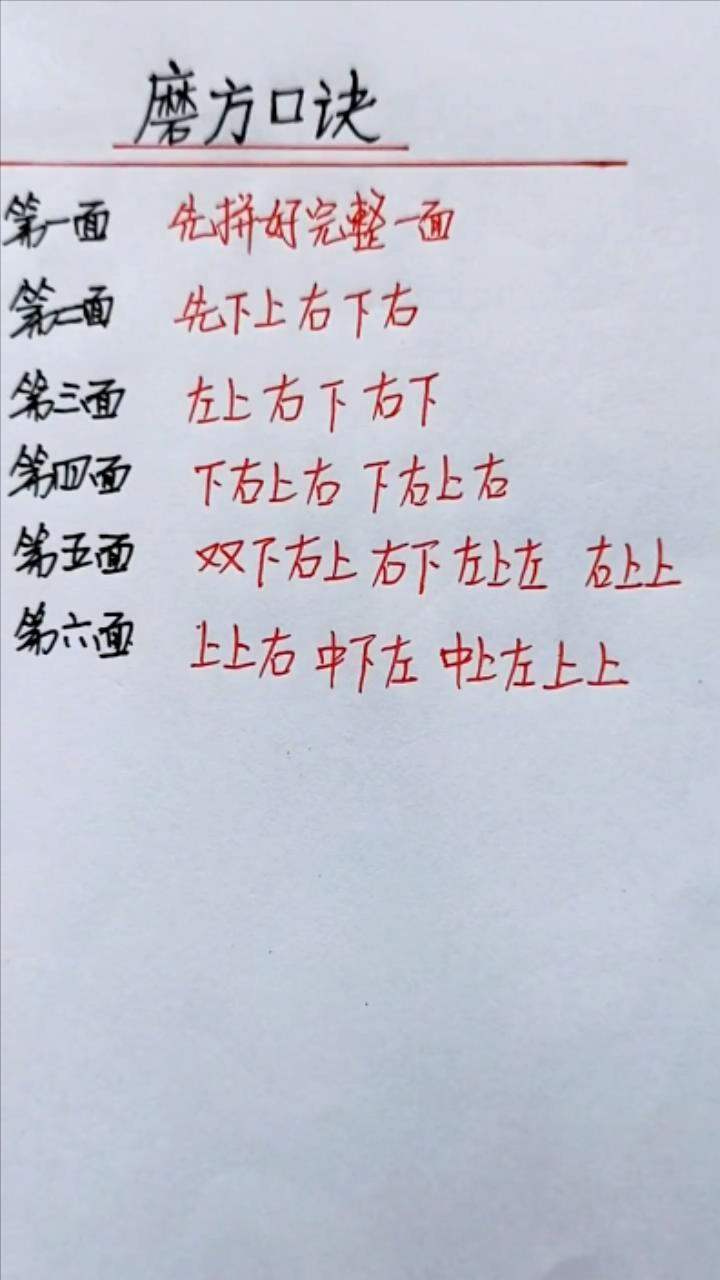 磨方口诀
第一面 先拼好完整一面
第二面 先下上右下右
第三面 左上右下右下
第四面 下右上右 下右上右
第五面 双下右上 右下左上左 右上上
第六面 上上右 中下左 中上左上上